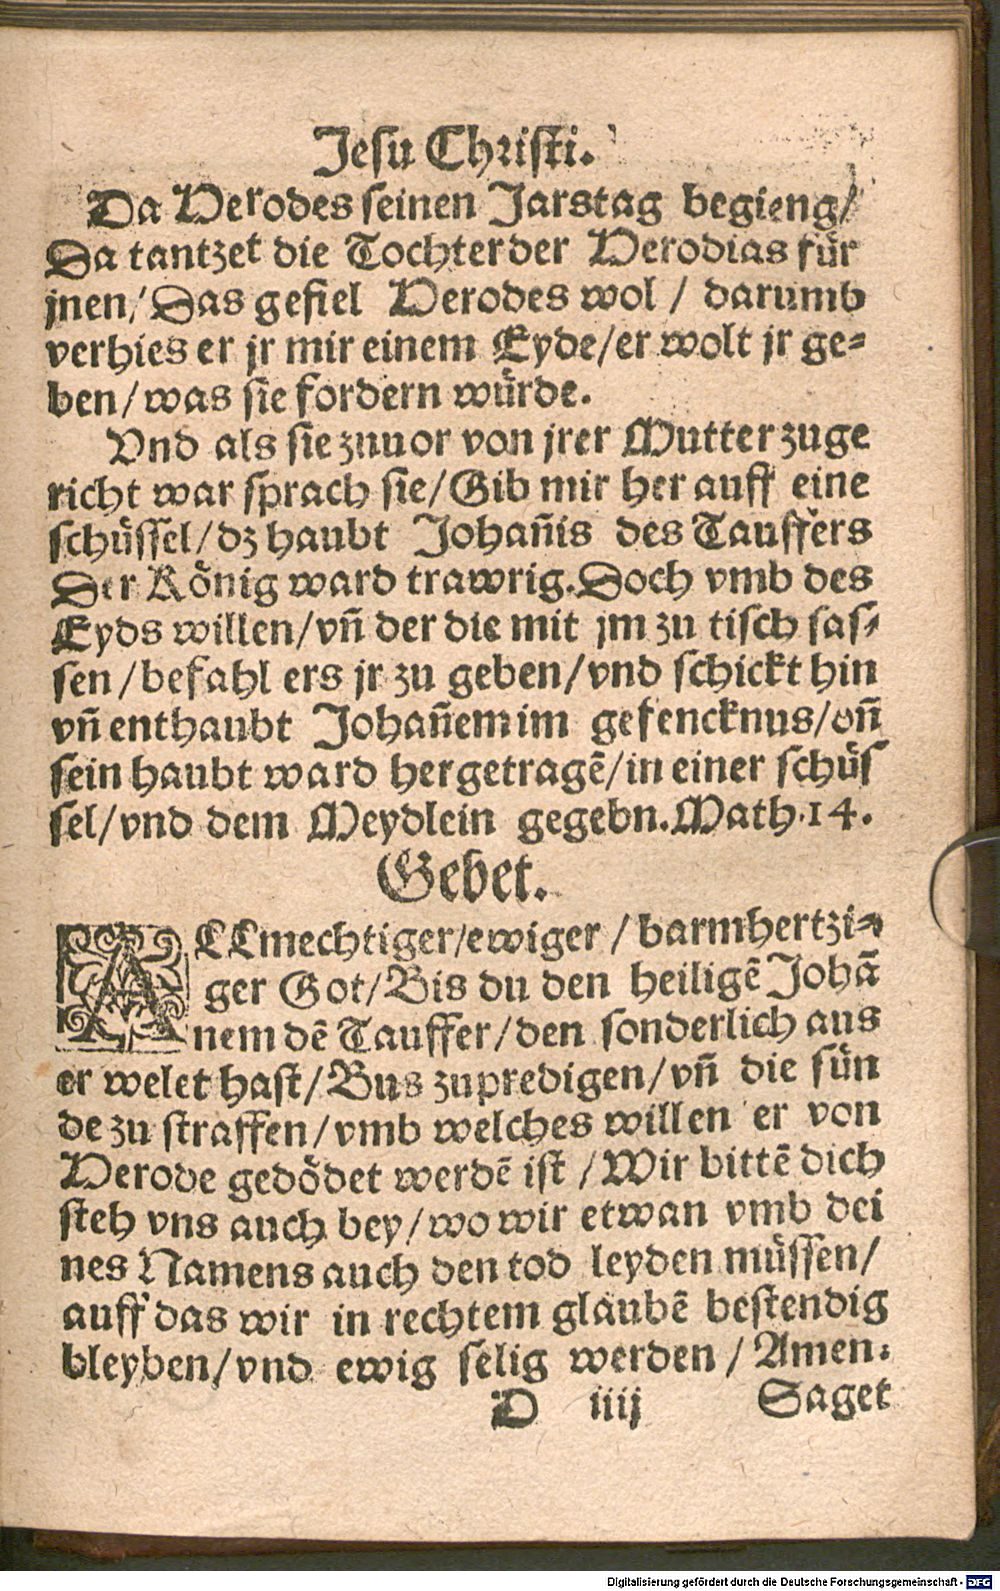 Jesu Christi.
Da Herodes seinen Jarstag begieng/
Da tantzet die Tochter der Herodias für
jnen/ Das gefiel Herodes wol / darumb
verhies er jr mir einem Eyde/er wolt jr ge-
ben/was sie fordern würde.
Vnd als sie zuuor von jrer Mutter zuge
richt war sprach sie/Gib mir her auff eine
schüssel/dz haubt Johañis des Tauffers
Der König ward trawrig.Doch vmb des
Eyds willen/vñ der die mit jm zu tisch sas-
sen/befahl ers jr zu geben/vnd schickt hin
vñ enthaubt Johañem im gefencknus/vñ
sein haubt ward hergetragē/in einer schüs
sel/vnd dem Meydlein gegebn.Math.14.
Gebet.
ALLmechtiger/ewiger / barmhertzi-
ger Got/Bis du den heiligē Johā
nem dē Tauffer/den sonderlich aus
er welet hast/Bus zupredigen/vñ die sün
de zu straffen/vmb welches willen er von
Herode gedödet werdē ist /Wir bittē dich
steh vns auch bey/wo wir etwan vmb dei
nes Namens auch den tod leyden müssen/
auff das wir in rechtem glaubē bestendig
bleyben/vnd ewig selig werden / Amen.
D iiij Saget
Digitalisierung gefördert durch die Deutsche Forschungsgemeinschaft - DFG